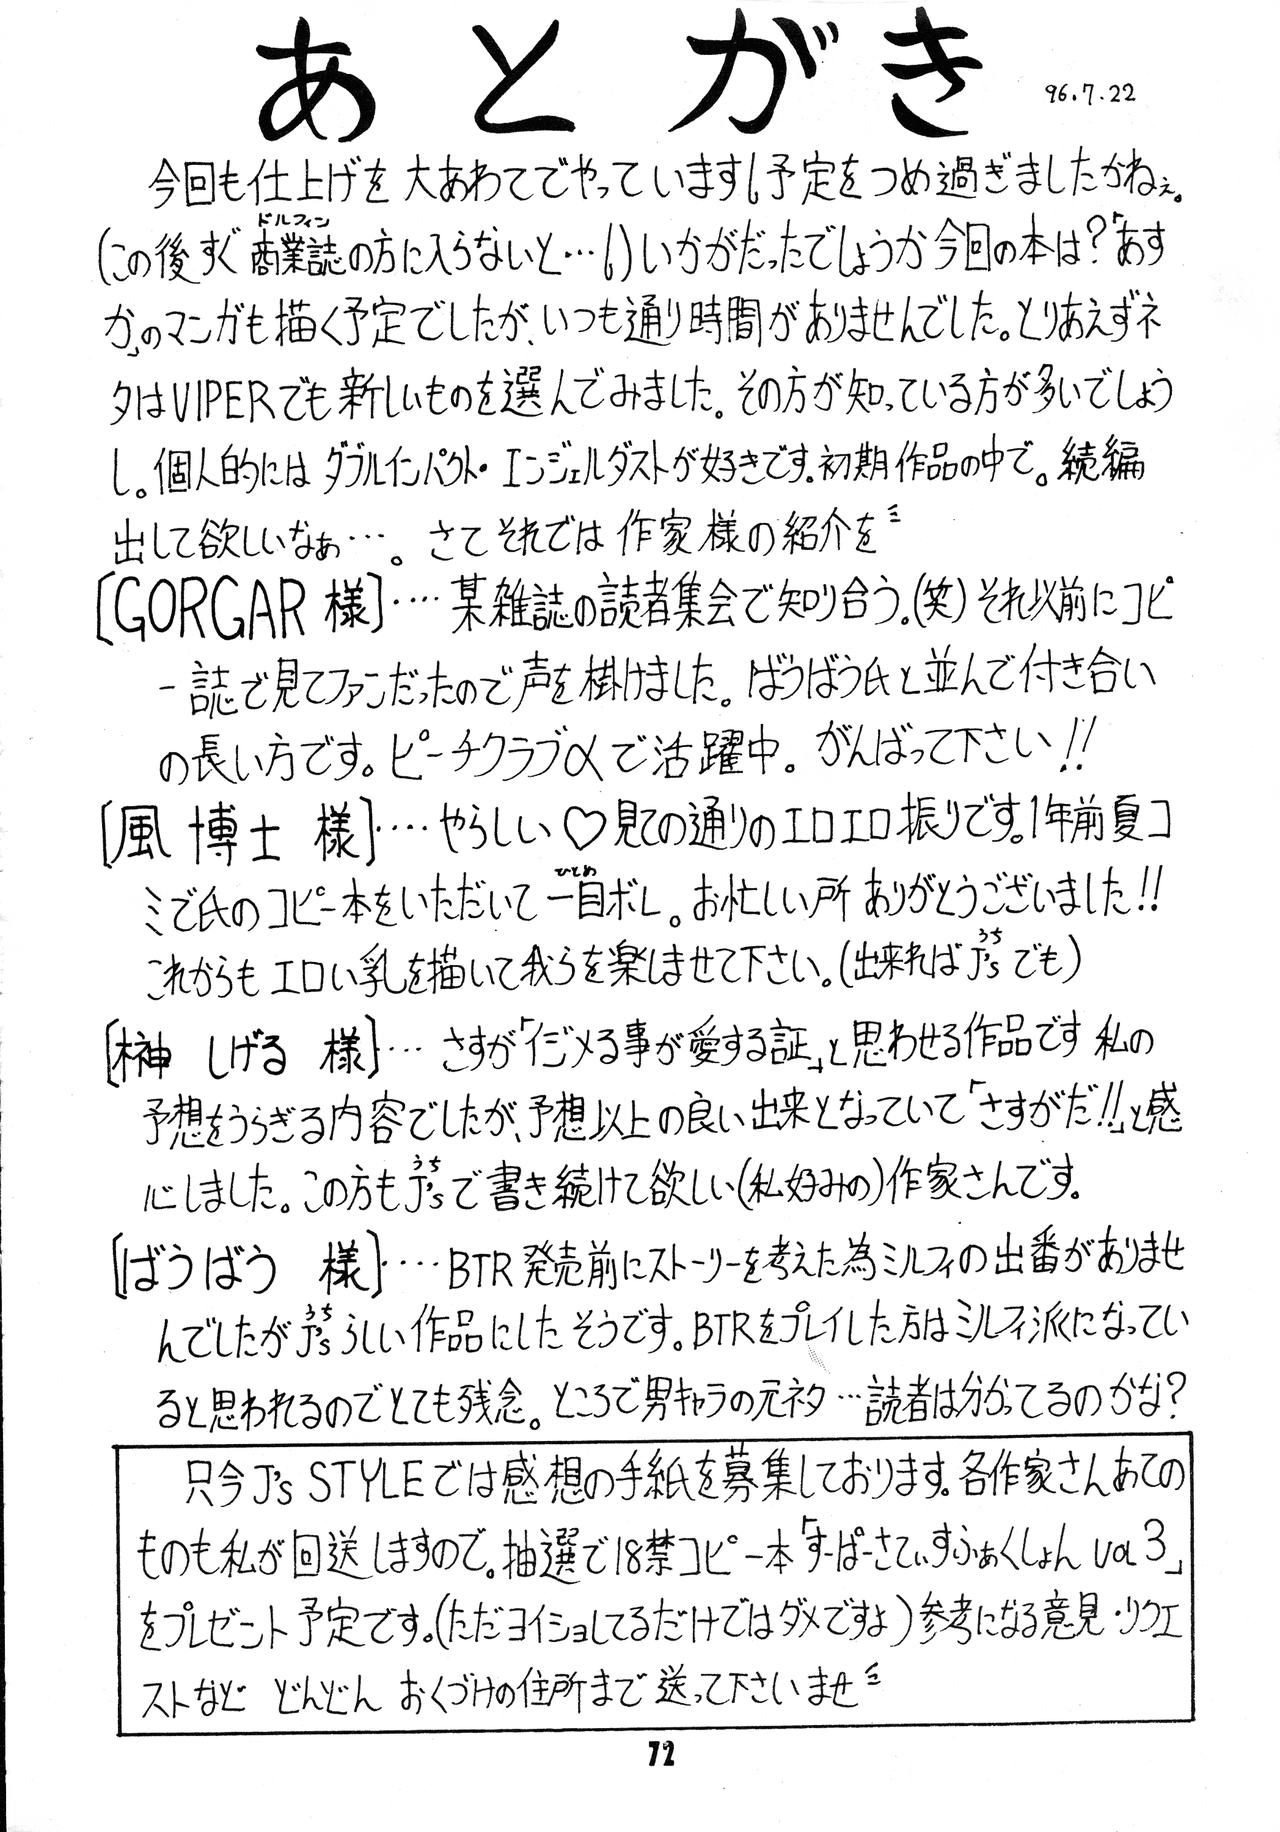 あとがき 96.7.22
今回も仕上げを大あわてでやっています。予定をつめ過ぎましたかねぇ。
ドルフィン
(この後すぐ商業誌の方に入らないと…。)いかがだったでしょうか今回の本は?「あす
か」のマンガも描く予定でしたが、いつも通り時間がありませんでした。とりあえずネ
タはVIPERでも新しいものを選んでみました。その方が知っている方が多いでしょう
し。個人的にはダブルインパクト・エンジェルダストが好きです。初期作品の中で。続編
出して欲しいなぁ…。さてそれでは作家様の紹介を
[GORGAR様]‥‥某雑誌の読者集会で知り合う。(笑)それ以前にコピ
ー誌で見てファンだったので声を掛けました。ばうばう氏と並んで付き合い
の長い方です。ピーチクラブαで活躍中。がんばって下さい!!
[風博士様]‥‥やらしい♡見ての通りのエロエロ振りです。1年前夏コ
ひとめ
ミで氏のコピー本をいただいて一目ボレ。お忙しい所ありがとうございました!!
うち
これからもエロい乳を描いて我らを楽しませて下さい。(出来ればJ'sでも)
[榊しげる様]…さすが「イジメる事が愛する証」と思わせる作品です私の
予想をうらぎる内容でしたが、予想以上の良い出来となっていて「さすがだ!!」と感
うち
心しました。この方もJ'sで書き続けて欲しい(私好みの)作家さんです。
[ばうばう様]‥‥BTR発売前にストーリーを考えた為ミルフィの出番がありませ
うち
んでしたがJ'sらしい作品にしたそうです。BTRをプレイした方はミルフィ派になってい
ると思われるのでとても残念。ところで男キャラの元ネタ…読者は分かってるのかな?
只今J's STYLEでは感想の手紙を募集しております。各作家さんあての
ものも私が回送しますので。抽選で18禁コピー本「すーぱーさてぃすふぁくしょんvol3」
をプレゼント予定です。(ただヨイショしてるだけではダメですよ)参考になる意見・リクエ
ストなどどんどんおくづけの住所まで送って下さいませ
72